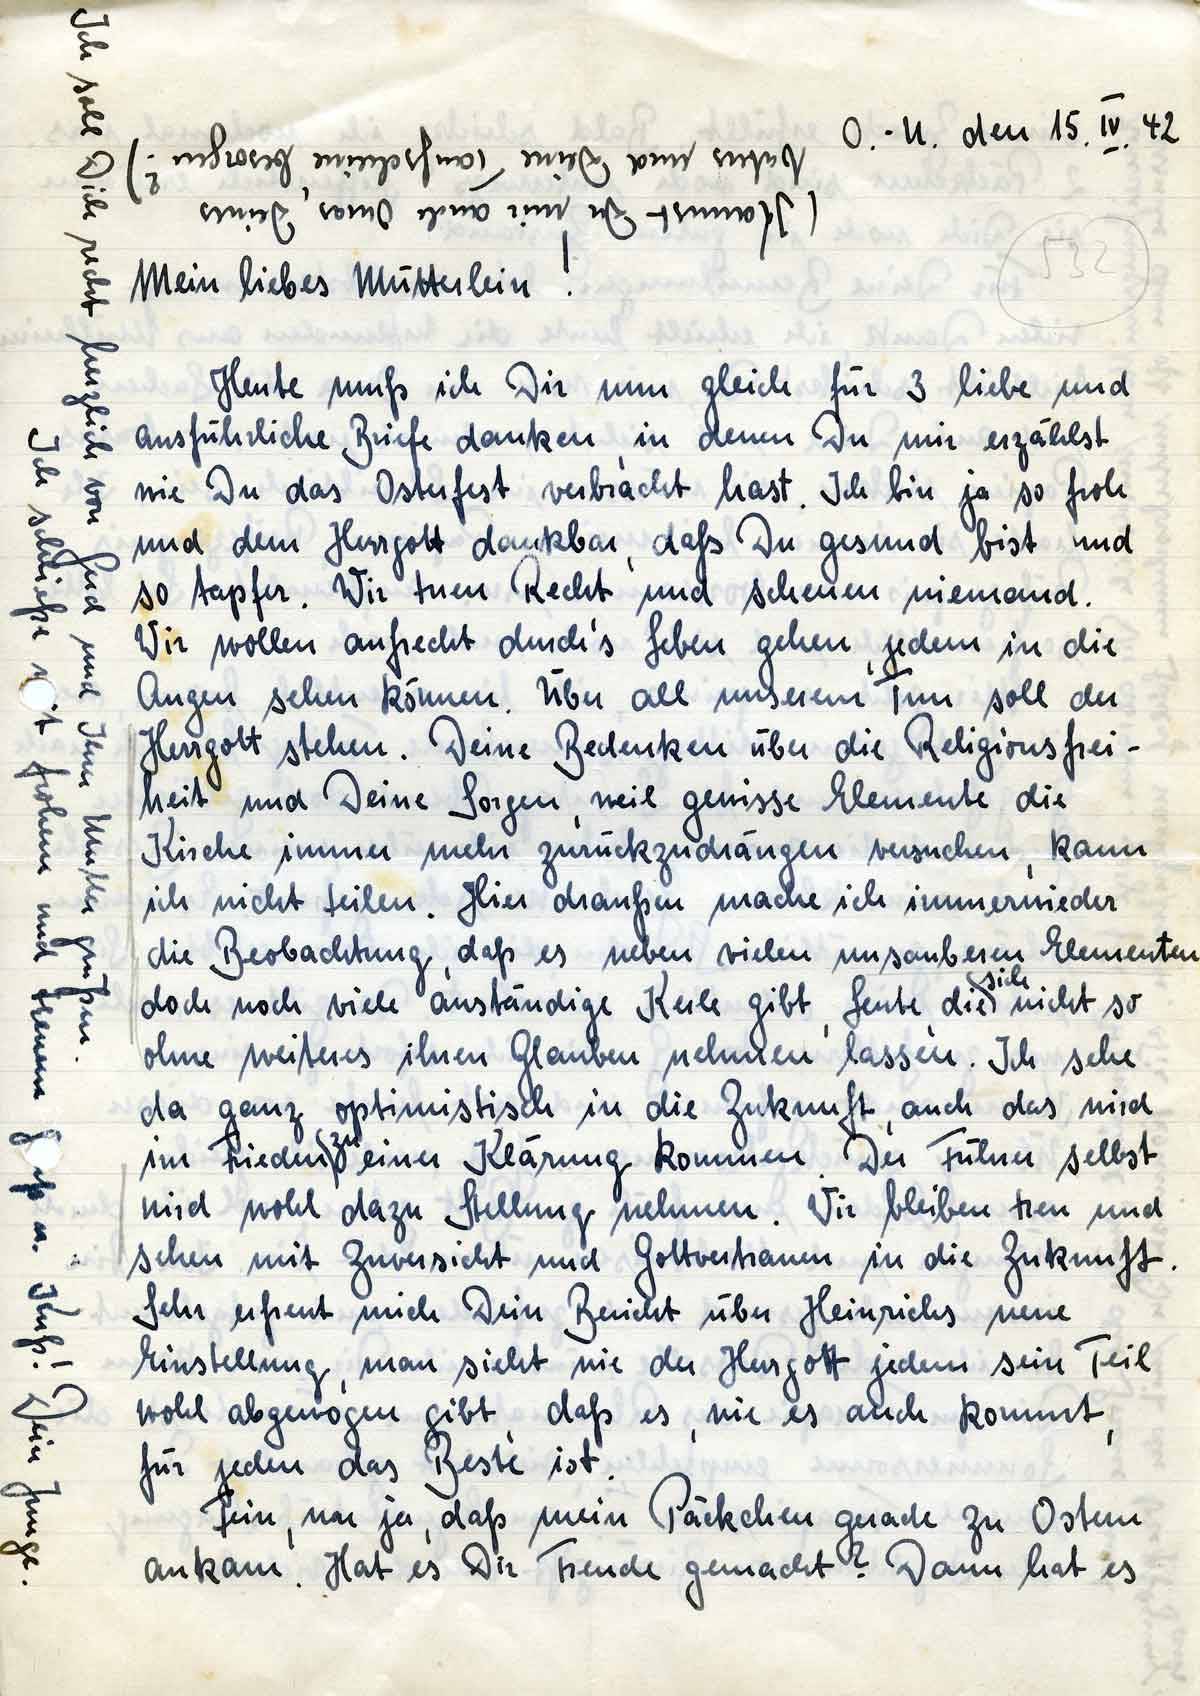 O.-U. den 15. IV. 42
(Kannst Du mir auch Omas, Deines
Vaters und Deine Taufscheine besorgen?)
532
Mein liebes Mütterlein!
Heute muß ich Dir nun gleich für 3 liebe und
ausführliche Briefe danken, in denen Du mir erzählst
wie Du das Osterfest verbracht hast. Ich bin ja so froh
und dem Herrgott dankbar, daß Du gesund bist und
so tapfer. Wir tuen Recht und scheuen niemand.
Wir wollen aufrecht durch's Leben gehen, jedem in die
Augen sehen können. Über all unserem Tun soll der
Herrgott stehen. Deine Bedenken über die Religionsfrei-
heit und Deine Sorgen, weil gewisse Elemente die
Kirche immer mehr zurückzudrängen versuchen, kann
ich nicht teilen. Hier draußen mache ich immerwieder
die Beobachtung, daß es neben vielen unsauberen Elementen
doch noch viele anständige Kerle gibt, Leute, die sich nicht so
ohne weiteres ihren Glauben nehmen lassen. Ich sehe
da ganz optimistisch in die Zukunft, auch das wird
im Frieden zu einer Klärung kommen. Der Führer selbst
wird wohl dazu Stellung nehmen. Wir bleiben treu und
sehen mit Zuversicht und Gottvertrauen in die Zukunft.
Sehr erfreut mich Dein Bericht über Heinrichs neue
Einstellung, man sieht wie der Herrgott jedem sein Teil
wohl abgewogen gibt, daß es, wie es auch kommt,
für jeden das Beste ist.
Fein, war ja, daß mein Päckchen gerade zu Ostern
ankam. Hat es Dir Freude gemacht? Dann hat es
Ich soll Dich recht herzlich von und Ihrer Mutter grüßen.
Ich schließe mit frohem und treuem Gruß u. Kuß! Dein Junge.